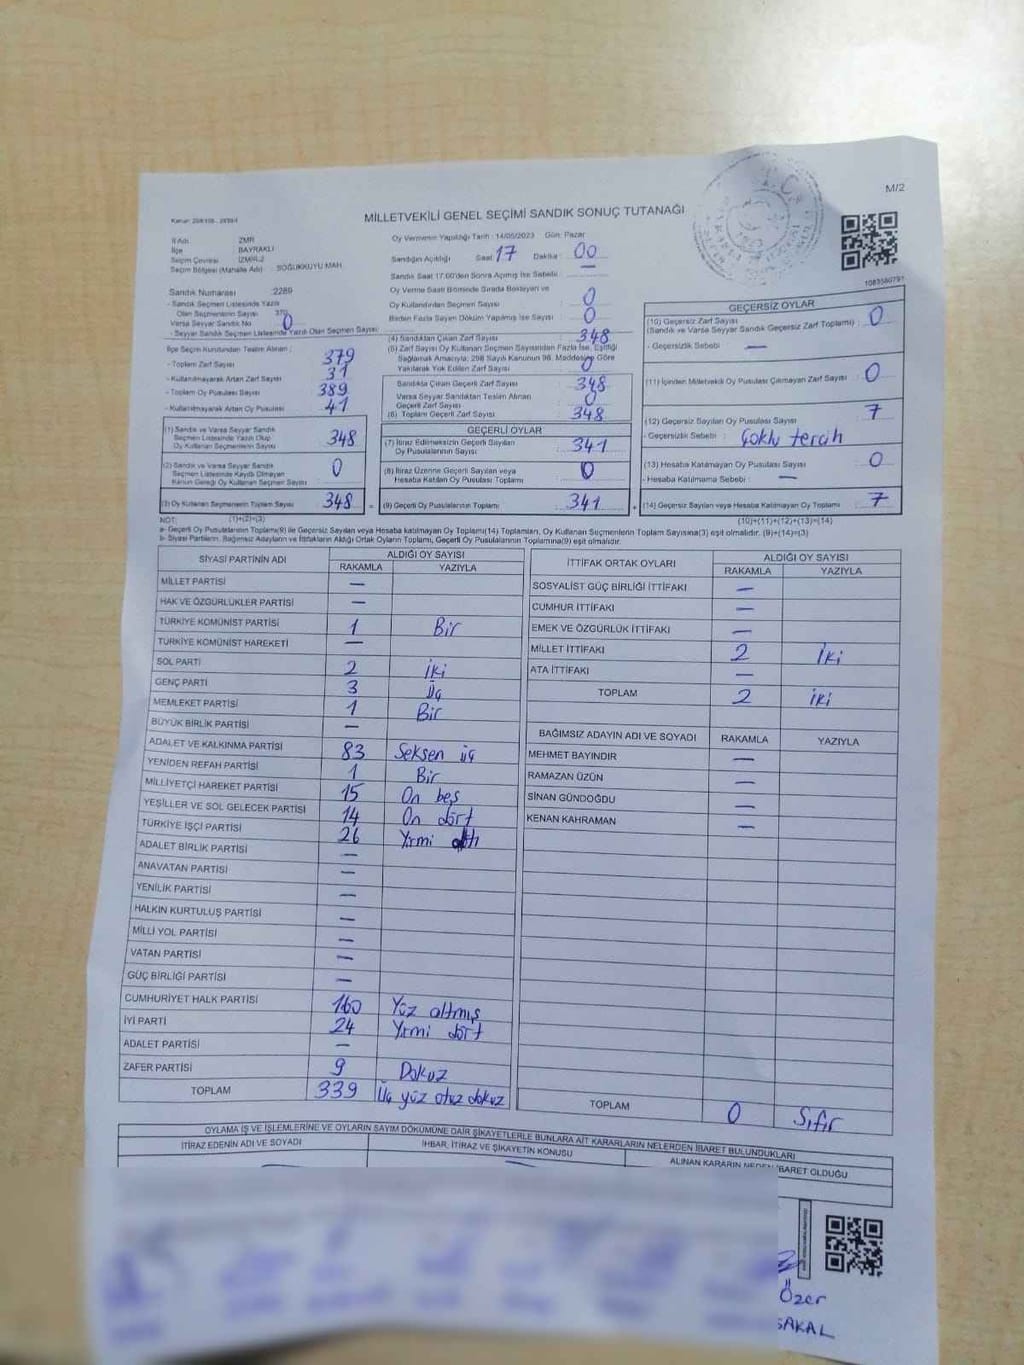 M/2
MİLLETVEKİLİ GENEL SEÇİMİ SANDIK SONUÇ TUTANAĞI
1083580791
İl Adı ZMR
İlçe BAYRAKLI
Seçim Çevresi İZMİR-2
Seçim Bölgesi (Mahalle Adı) SOĞUKKUYU MAH
Sandık Numarası 2289
- Sandık Seçmen Listesinde Yazılı
Olan Seçmenlerin Sayısı 370
Varsa Seyyar Sandık No 0
- Seyyar Sandık Seçmen Listesinde Yazılı Olan Seçmen Sayısı
İlçe Seçim Kurulundan Teslim Alınan
- Toplam Zarf Sayısı 379
- Kullanılmayarak Artan Zarf Sayısı 31
- Toplam Oy Pusulası Sayısı 389
- Kullanılmayarak Artan Oy Pusulası 41
(1) Sandık ve Varsa Seyyar Sandık
Seçmen Listesinde Yazılı Olup
Oy Kullanan Seçmenlerin Sayısı 348
(2) Sandık ve Varsa Seyyar Sandık
Seçmen Listesinde Kaydı Olmayan
Kanun Gereği Oy Kullanan Seçmen Sayısı 0
(3) Oy Kullanan Seçmenlerin Toplam Sayısı 348
(1)+(2)=(3)
Oy Vermenin Yapıldığı Tarih : 14/05/2023 Gün: Pazar
Sandığın Açıldığı Saat 17 Dakika : 00
Sandık Saat 17:00'den Sonra Açılmış İse Sebebi : —
Oy Verme Saati Bitiminde Sırada Bekleyen ve
Oy Kullandırılan Seçmen Sayısı 0
Birden Fazla Sayım Döküm Yapılmış İse Sayısı : 0
(4) Sandıktan Çıkan Zarf Sayısı 348
(5) Zarf Sayısı Oy Kullanan Seçmen Sayısından Fazla İse, Eşitliği
Sağlamak Amacıyla, 298 Sayılı Kanunun 98. Maddesine Göre
Yakılarak Yok Edilen Zarf Sayısı 0
Sandıkta Çıkan Geçerli Zarf Sayısı 348
Varsa Seyyar Sandıktan Teslim Alınan
Geçerli Zarf Sayısı 0
(6) Toplam Geçerli Zarf Sayısı 348
GEÇERLİ OYLAR
(7) İtiraz Edilmeksizin Geçerli Sayılan
Oy Pusulalarının Sayısı 341
(8) İtiraz Üzerine Geçerli Sayılan veya
Hesaba Katılan Oy Pusulası Toplamı 0
(9) Geçerli Oy Pusulalarının Toplamı 341
GEÇERSİZ OYLAR
(10) Geçersiz Zarf Sayısı
(Sandık ve Varsa Seyyar Sandık Geçersiz Zarf Toplamı) 0
- Geçersizlik Sebebi : —
(11) İçinden Milletvekili Oy Pusulası Çıkmayan Zarf Sayısı 0
(12) Geçersiz Sayılan Oy Pusulası Sayısı 7
- Geçersizlik Sebebi : Çoklu tercih
(13) Hesaba Katılmayan Oy Pusulası Sayısı 0
- Hesaba Katılmama Sebebi : —
(14) Geçersiz Sayılan veya Hesaba Katılmayan Oy Toplamı 7
(10)+(11)+(12)+(13)=(14)
NOT:
a- Geçerli Oy Pusulalarının Toplamı(9) ile Geçersiz Sayılan veya Hesaba katılmayan Oy Toplamı(14) Toplamları, Oy Kullanan Seçmenlerin Toplam Sayısına(3) eşit olmalıdır. (9)+(14)=(3)
b- Siyasi Partilerin, Bağımsız Adayların ve İttifakların Aldığı Ortak Oyların Toplamı, Geçerli Oy Pusulalarının Toplamına(9) eşit olmalıdır.
SİYASİ PARTİNİN ADI ALDIĞI OY SAYISI
RAKAMLA YAZIYLA
MİLLET PARTİSİ —
HAK VE ÖZGÜRLÜKLER PARTİSİ —
TÜRKİYE KOMÜNİST PARTİSİ 1 Bir
TÜRKİYE KOMÜNİST HAREKETİ —
SOL PARTİ 2 İki
GENÇ PARTİ 3 Üç
MEMLEKET PARTİSİ 1 Bir
BÜYÜK BİRLİK PARTİSİ —
ADALET VE KALKINMA PARTİSİ 83 Seksen üç
YENİDEN REFAH PARTİSİ 1 Bir
MİLLİYETÇİ HAREKET PARTİSİ 15 On beş
YEŞİLLER VE SOL GELECEK PARTİSİ 14 On dört
TÜRKİYE İŞÇİ PARTİSİ 26 Yirmi altı
ADALET BİRLİK PARTİSİ —
ANAVATAN PARTİSİ —
YENİLİK PARTİSİ —
HALKIN KURTULUŞ PARTİSİ —
MİLLİ YOL PARTİSİ —
VATAN PARTİSİ —
GÜÇ BİRLİĞİ PARTİSİ —
CUMHURİYET HALK PARTİSİ 160 Yüz altmış
İYİ PARTİ 24 Yirmi dört
ADALET PARTİSİ —
ZAFER PARTİSİ 9 Dokuz
TOPLAM 339 Üç yüz otuz dokuz
İTTİFAK ORTAK OYLARI ALDIĞI OY SAYISI
RAKAMLA YAZIYLA
SOSYALİST GÜÇ BİRLİĞİ İTTİFAKI —
CUMHUR İTTİFAKI —
EMEK VE ÖZGÜRLÜK İTTİFAKI —
MİLLET İTTİFAKI 2 İki
ATA İTTİFAKI —
TOPLAM 2 iki
BAĞIMSIZ ADAYIN ADI VE SOYADI RAKAMLA YAZIYLA
MEHMET BAYINDIR —
RAMAZAN ÜZÜN —
SİNAN GÜNDOĞDU —
KENAN KAHRAMAN —
TOPLAM 0 Sıfır
OYLAMA İŞ VE İŞLEMLERİNE VE OYLARIN SAYIM DÖKÜMÜNE DAİR ŞİKAYETLERLE BUNLARA AİT KARARLARIN NELERDEN İBARET BULUNDUKLARI
İTİRAZ EDENİN ADI VE SOYADI İHBAR, İTİRAZ VE ŞİKAYETİN KONUSU ALINAN KARARIN NEDEN İBARET OLDUĞU
Özer
SAKAL